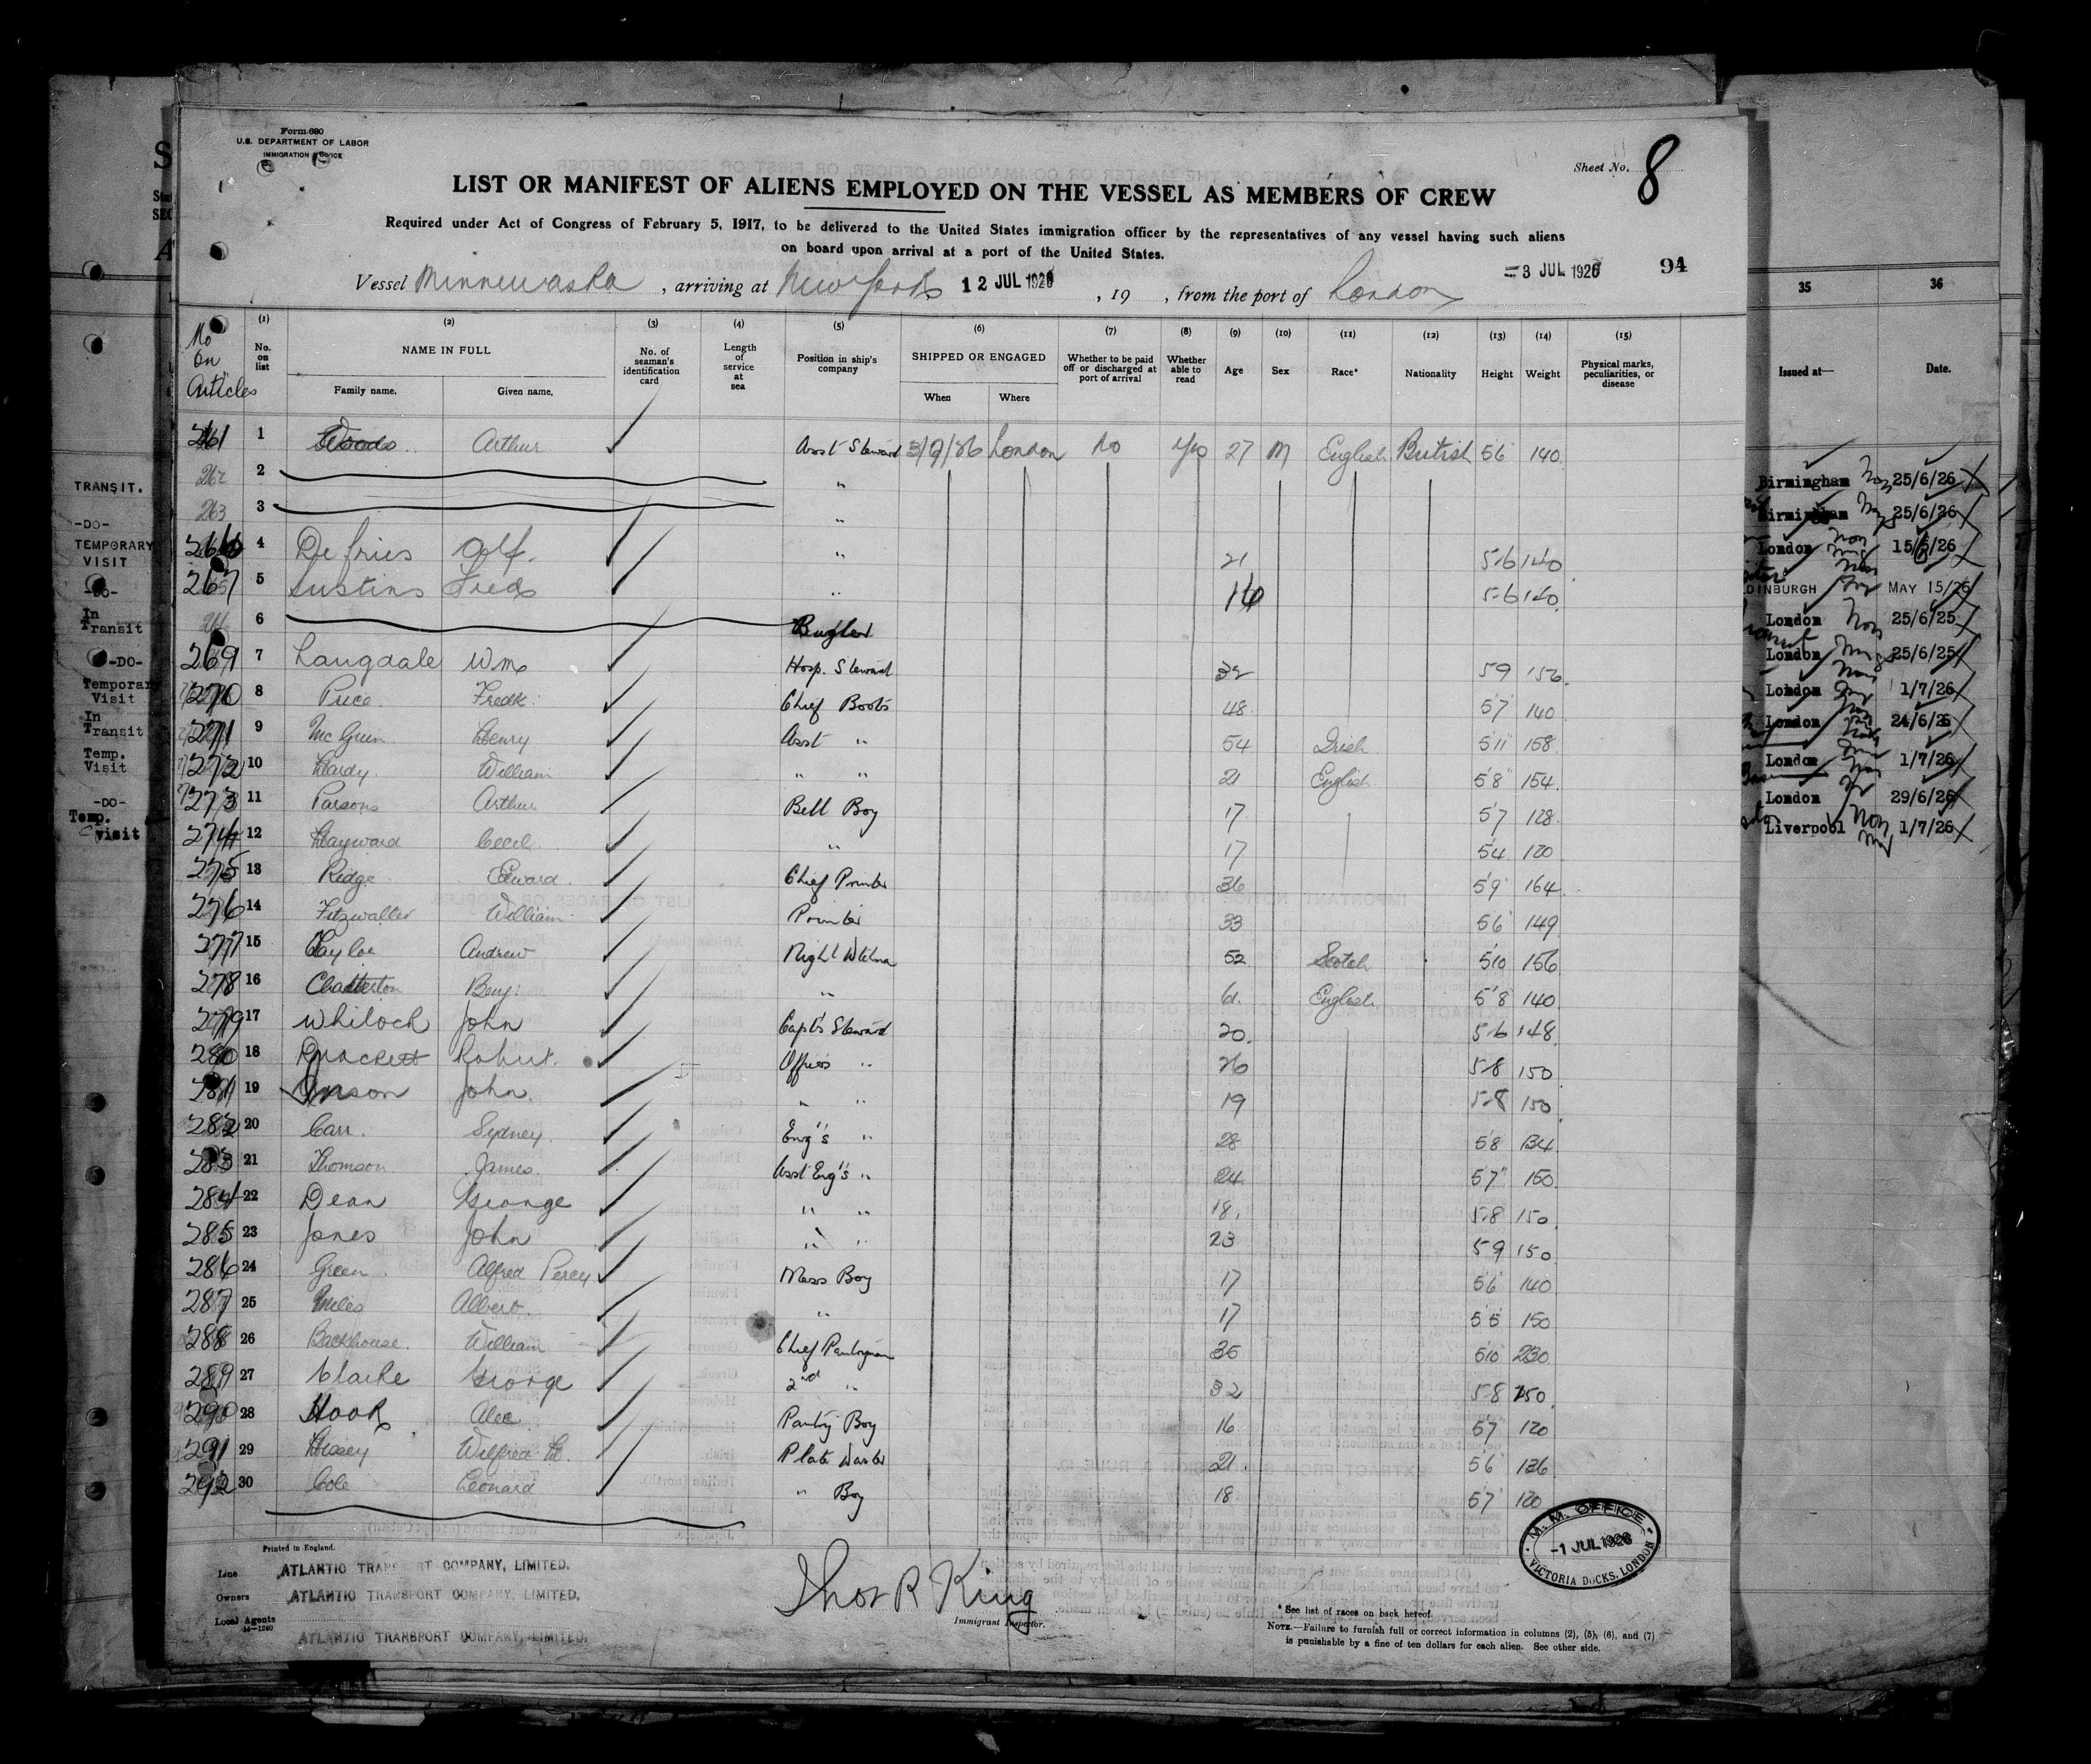 Form 680
U.S. DEPARTMENT OF LABOR
IMMIGRATION SERVICE
Sheet No. 8
LIST OR MANIFEST OF ALIENS EMPLOYED ON THE VESSEL AS MEMBERS OF CREW
Required under Act of Congress of February 5, 1917, to be delivered to the United States immigration officer by the representatives of any vessel having such aliens
on board upon arrival at a port of the United States.
-3 JUL 1926 94
Vessel Minnewaska, arriving at New York 12 JUL 1926, 19 , from the port of London
No on Articles
(1) No. on list
(2) NAME IN FULL
Family name. Given name.
(3) No. of seaman's identification card
(4) Length of service at sea
(5) Position in ship's company
(6) SHIPPED OR ENGAGED
When Where
(7) Whether to be paid off or discharged at port of arrival
(8) Whether able to read
(9) Age
(10) Sex
(11) Race*
(12) Nationality
(13) Height
(14) Weight
(15) Physical marks, peculiarities, or disease
35 36
Issued at— Date.
261 1 Woods Arthur Asst Steward London No Yes 27 M English British 5'6 140
262 2 "
263 3 "
266 4 Defries Alf. " 21 5-6 140
267 5 Fred " 16 5-6 140
6 Bugler
269 7 Langdale Wm Hosp. Steward 32 59 156
270 8 Price Fredk: Chief Boots 48 5'7 140
271 9 Henry Asst " 54 Irish 5'11 158
272 10 Hardy William " " 21 English 5'8 154
273 11 Parsons Arthur Bell Boy 17 5'7 128
274 12 Hayward Cecil " 17 5'4 120
275 13 Ridge Edward Chief Printer 36 5'9 164
276 14 Fitzwalter William Printer 33 5'6 149
277 15 Andrew Night Wtchmn 52 Scotch 5'10 156
278 16 Chatterton Benj: " 61 English 5'8 140
279 17 Whitock John Capt's Steward 20 5-6 148
280 18 Robert Officers " 26 5-8 150
281 19 John " " 19 5-8 150
282 20 Carr Sydney Eng's " 28 5'8 134
283 21 Thomson James Asst Eng's " 24 5'7" 150
284 22 Dean George " " 18 5-8 150
285 23 Jones John " " 23 5-9 150
286 24 Green Alfred Percy Mess Boy 17 5'6 140
287 25 Miles Albert " 17 5'5 150
288 26 Backhouse William Chief Pantryman 35 5'10 230
289 27 Clarke George 2nd " 32 5-8 150
290 28 Hook Alec Pantry Boy 16 5'7 120
291 29 Wilfred H. Plate Washer 21 5'6 136
292 30 Cole Leonard " Boy 18 5'7 120
TRANSIT.
-DO-
TEMPORARY VISIT
-DO-
In Transit
-DO-
Temporary Visit
In Transit
Temp. Visit
-DO-
Temp. visit
Birmingham 25/6/26
Birmingham 25/6/26
London 15/6/26
EDINBURGH MAY 15/26
London 25/6/25
London 25/6/25
London 1/7/26
London 24/6/26
London 1/7/26
London 29/6/26
Liverpool 1/7/26
Printed in England.
Line ATLANTIC TRANSPORT COMPANY, LIMITED.
Owners ATLANTIC TRANSPORT COMPANY, LIMITED.
Local Agents ATLANTIC TRANSPORT COMPANY, LIMITED.
14—1240
Thos R King
Immigrant Inspector.
M. M. OFFICE
-1 JUL 1926
VICTORIA DOCKS, LONDON
* See list of races on back hereof.
NOTE.—Failure to furnish full or correct information in columns (2), (5), (6), and (7)
is punishable by a fine of ten dollars for each alien. See other side.